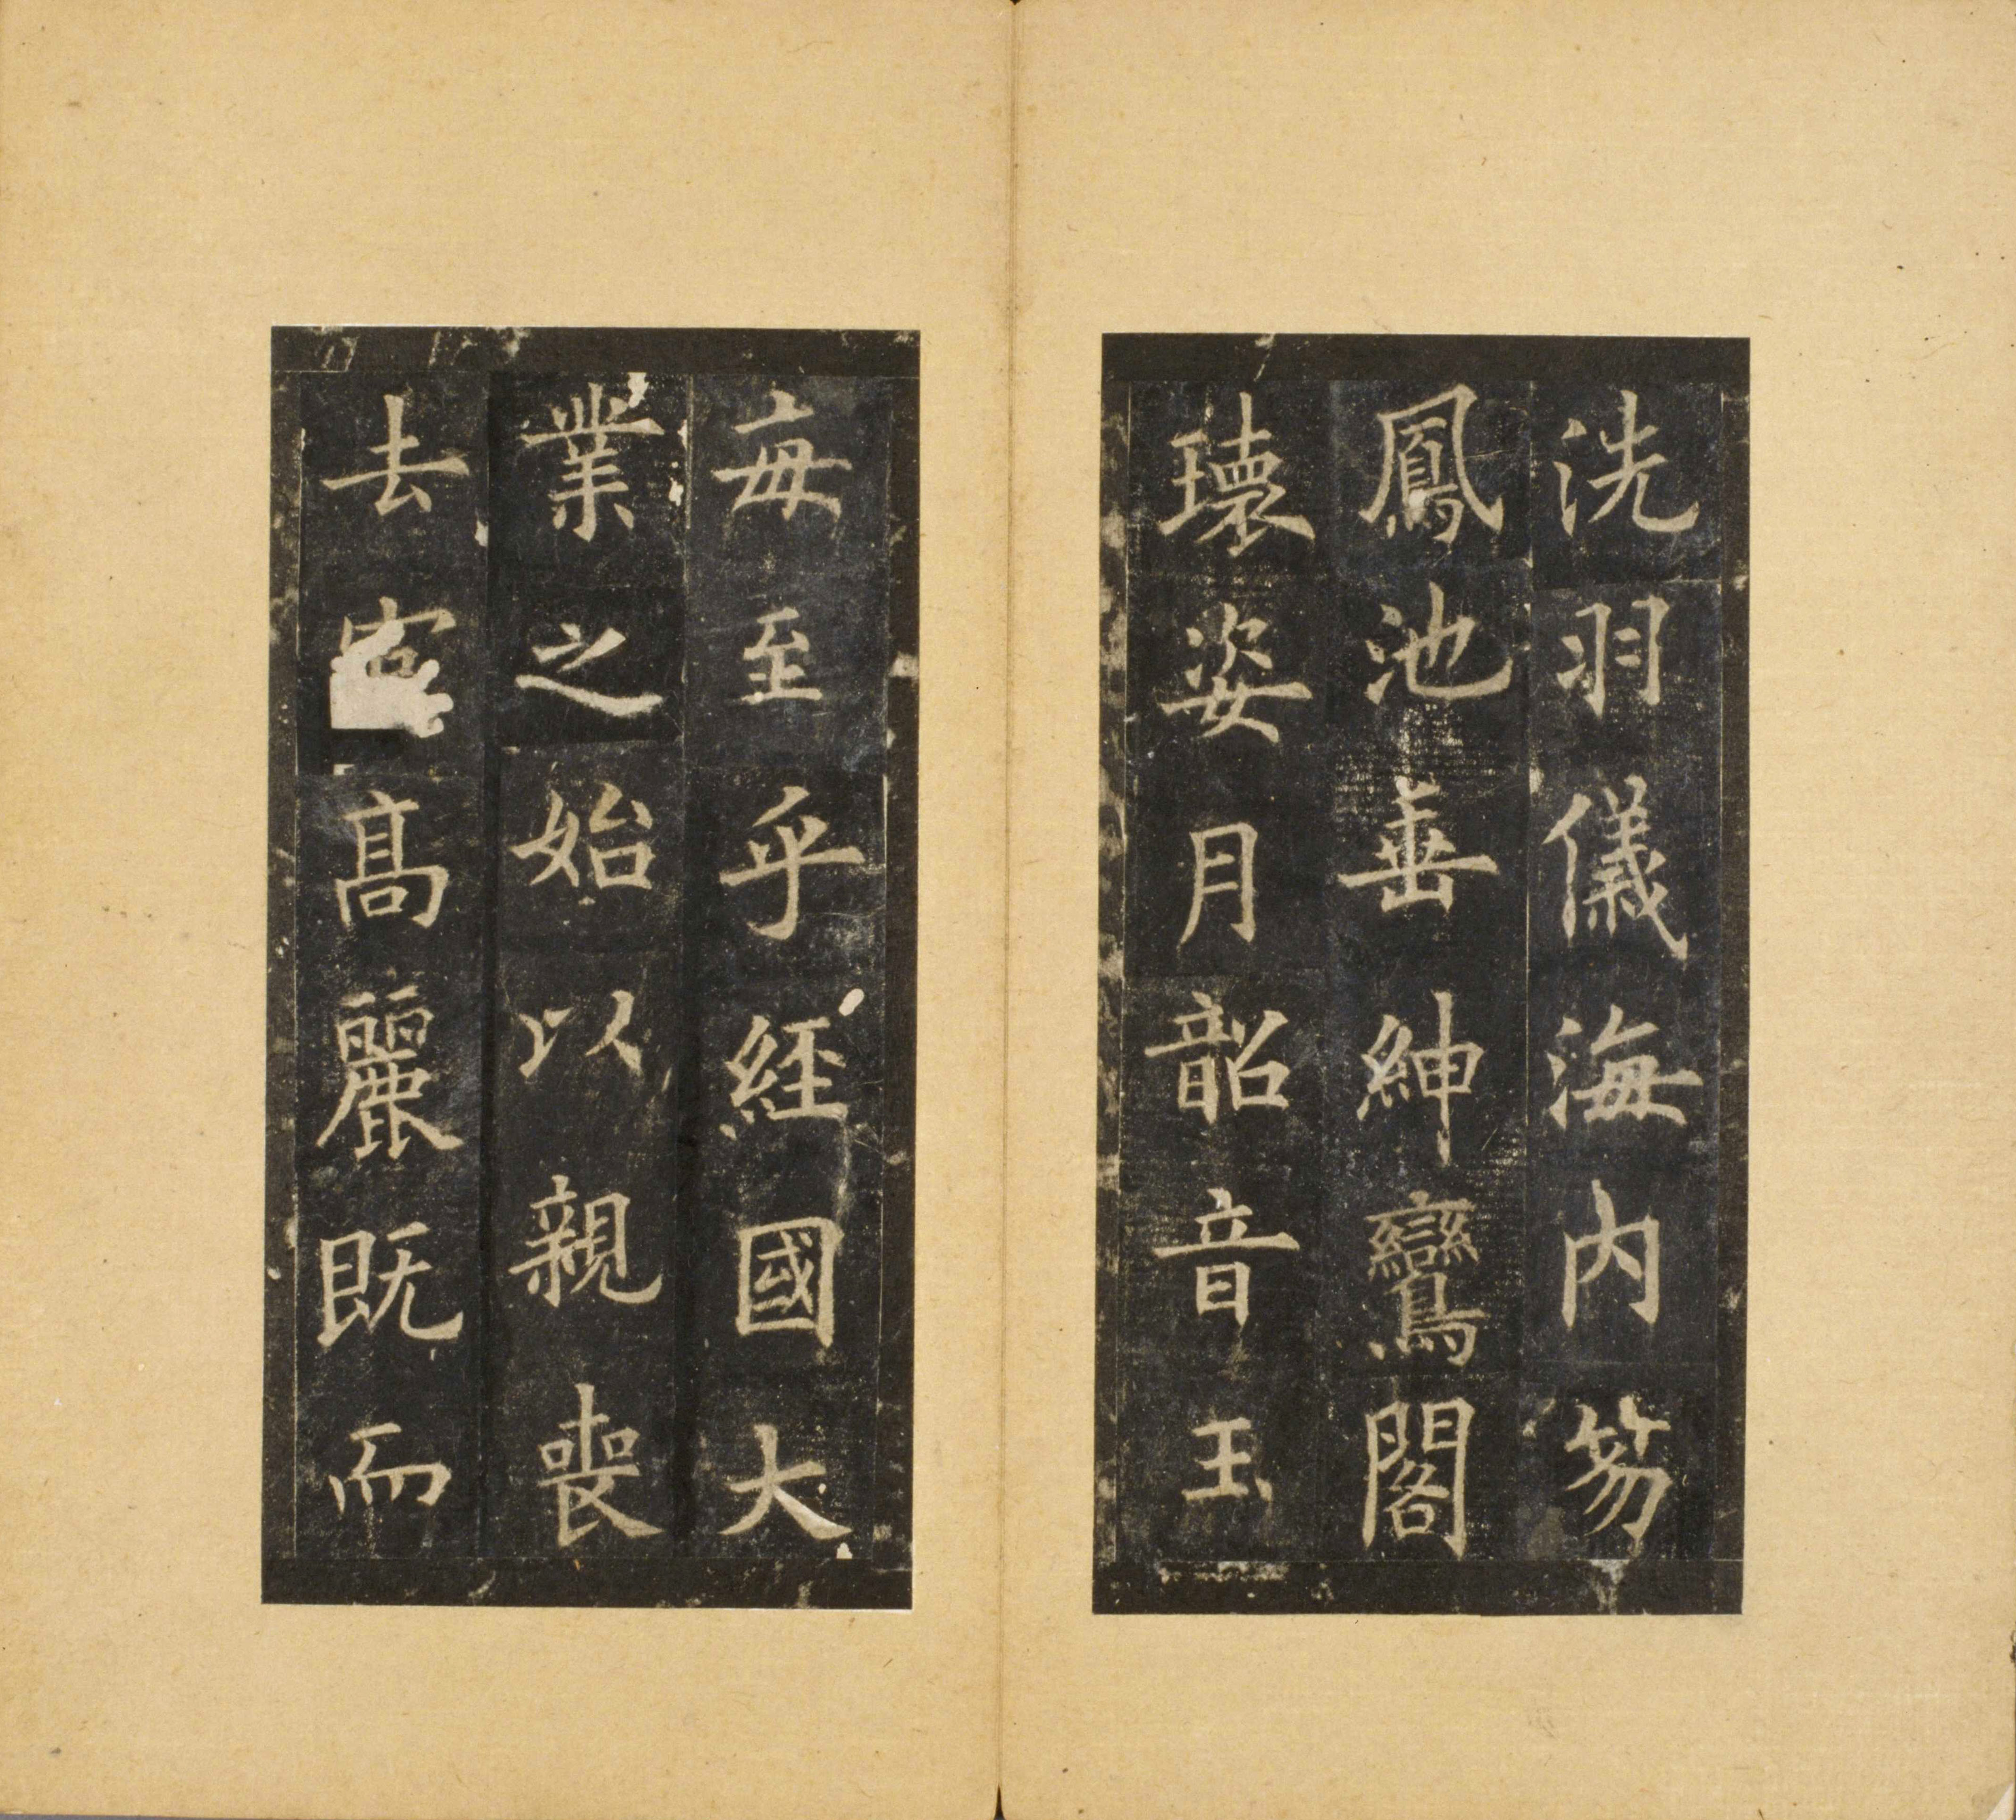 洗羽儀海内笏
鳳池善紳鸞閣
瓌姿月韶音玉
每至乎經國大
業之始以親喪
去官高麗既而